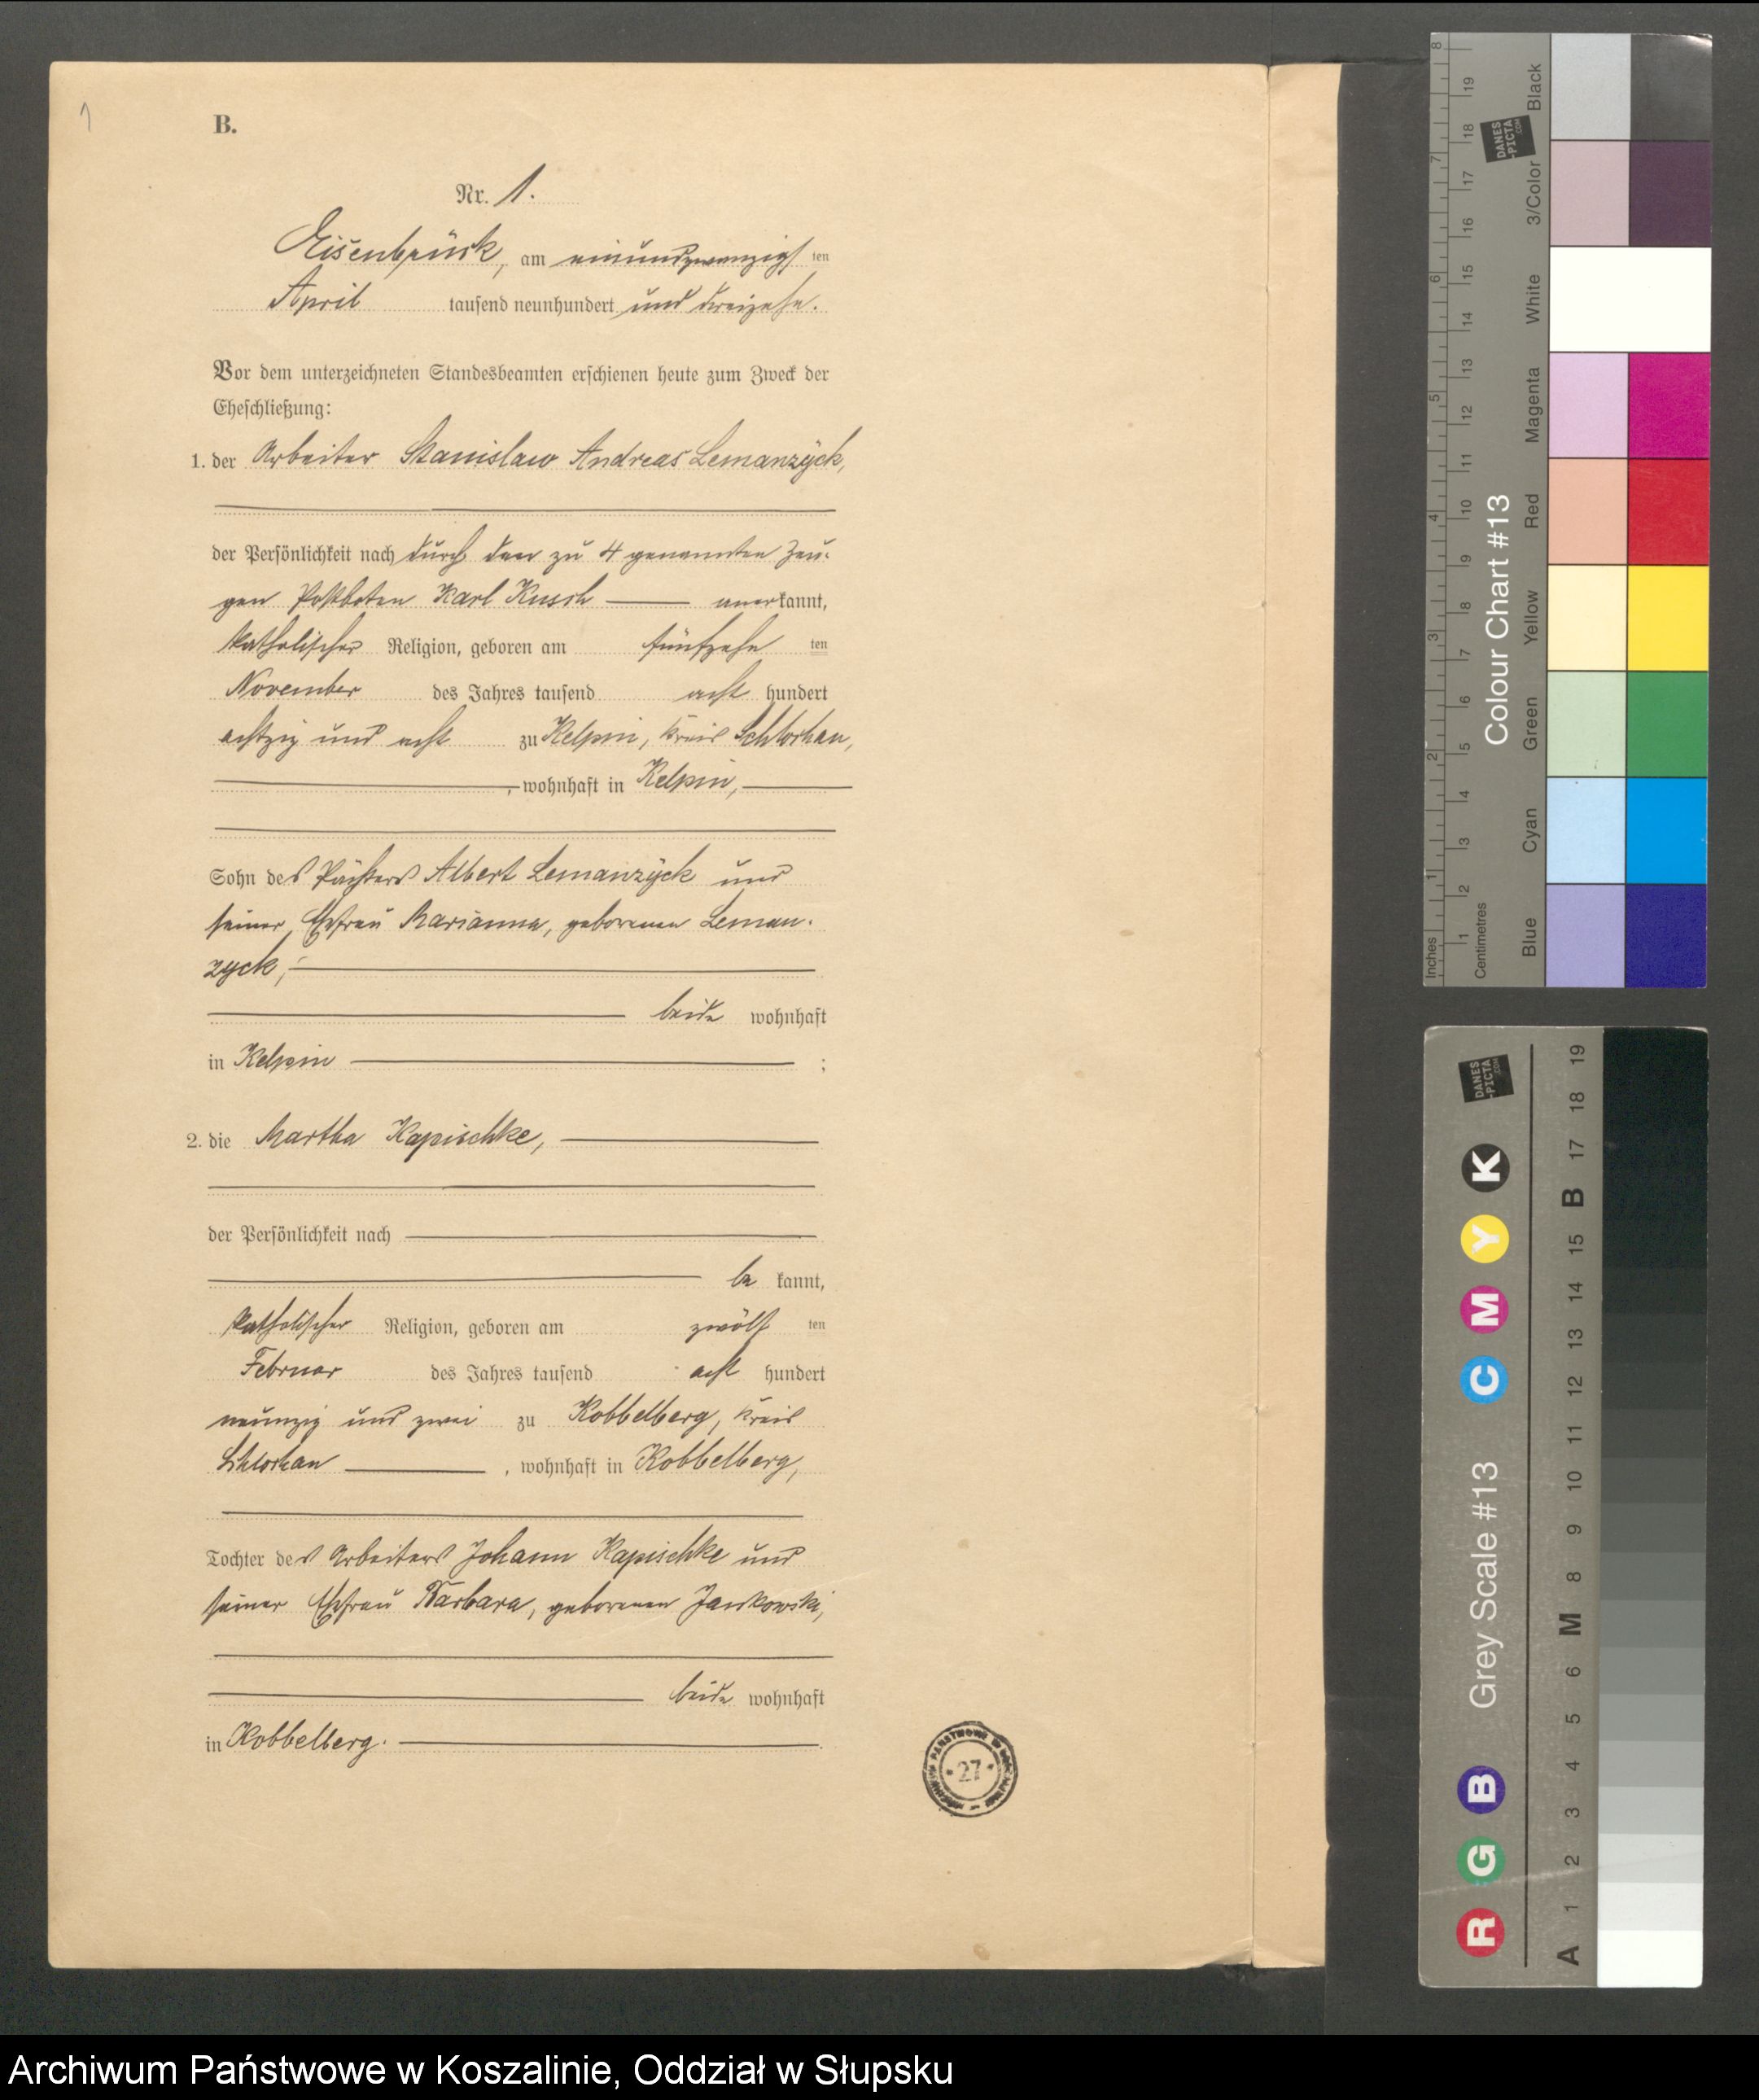 1
B.
Nr. 1.
Eisenbrück, am einundzwanzigs ten
April tausend neunhundert und dreizehn.
Vor dem unterzeichneten Standesbeamten erschienen heute zum Zweck der
Eheschließung:
1. der Arbeiter Stanislaw Andreas Lemanzÿck,
der Persönlichkeit nach durch den zu 4 genannten Zeu-
gen Postboten Karl Kusch anerkannt,
katholischer Religion, geboren am fünfzehn ten
November des Jahres tausend acht hundert
achtzig und acht zu Kelpin, Kreis Schlochau,
, wohnhaft in Kelpin,
Sohn des Pächters Albert Lemanzÿck und
seiner Ehefrau Marianna, geborenen Leman-
zyck,
beide wohnhaft
in Kelpin ;
2. die Martha Kapischke,
der Persönlichkeit nach
be kannt,
katholischer Religion, geboren am zwölf ten
Februar des Jahres tausend acht hundert
neunzig und zwei zu Kobbelberg, Kreis
Schlochau , wohnhaft in Kobbelberg,
Tochter des Arbeiters Johann Kapischke und
seiner Ehefrau Barbara, geborenen Jankowski,
beide wohnhaft
in Kobbelberg.
27
Colour Chart #13
Inches
Centimetres
Blue
Cyan
Green
Yellow
Red
Magenta
White
3/Color
Black
DANES
-PICTA
.COM
Grey Scale #13
R G B C M Y K
A 1 2 3 4 5 6 M 8 9 10 11 12 13 14 15 B 17 18 19
DANES
-PICTA
.COM
Archiwum Państwowe w Koszalinie, Oddział w Słupsku